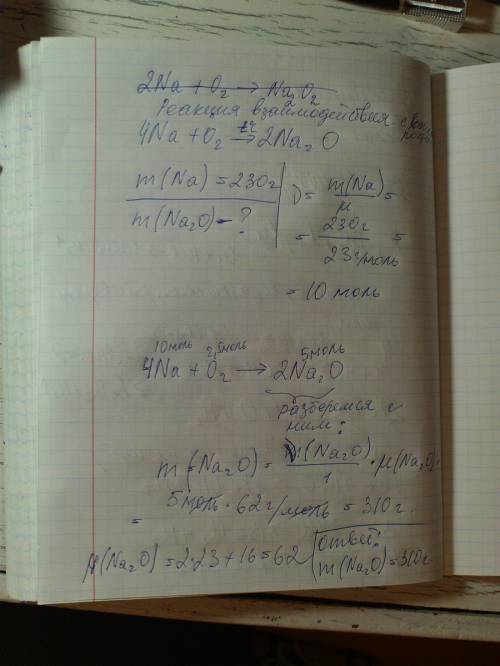 2Na + O₂ → Na₂O₂
Реакция взаимодействия с
4Na + O₂ →t° 2Na₂O
m(Na) = 230г
m(Na₂O) - ?
ν = m(Na)/μ =
= 230г / 23г/моль =
= 10 моль
10моль 2,5моль 5моль
4Na + O₂ → 2Na₂O
разберемся с
ним:
m (Na₂O) = ν(Na₂O)/1 · μ(Na₂O)
= 5моль · 62г/моль = 310г
μ(Na₂O) = 2·23+16=62
ответ:
m(Na₂O)=310г